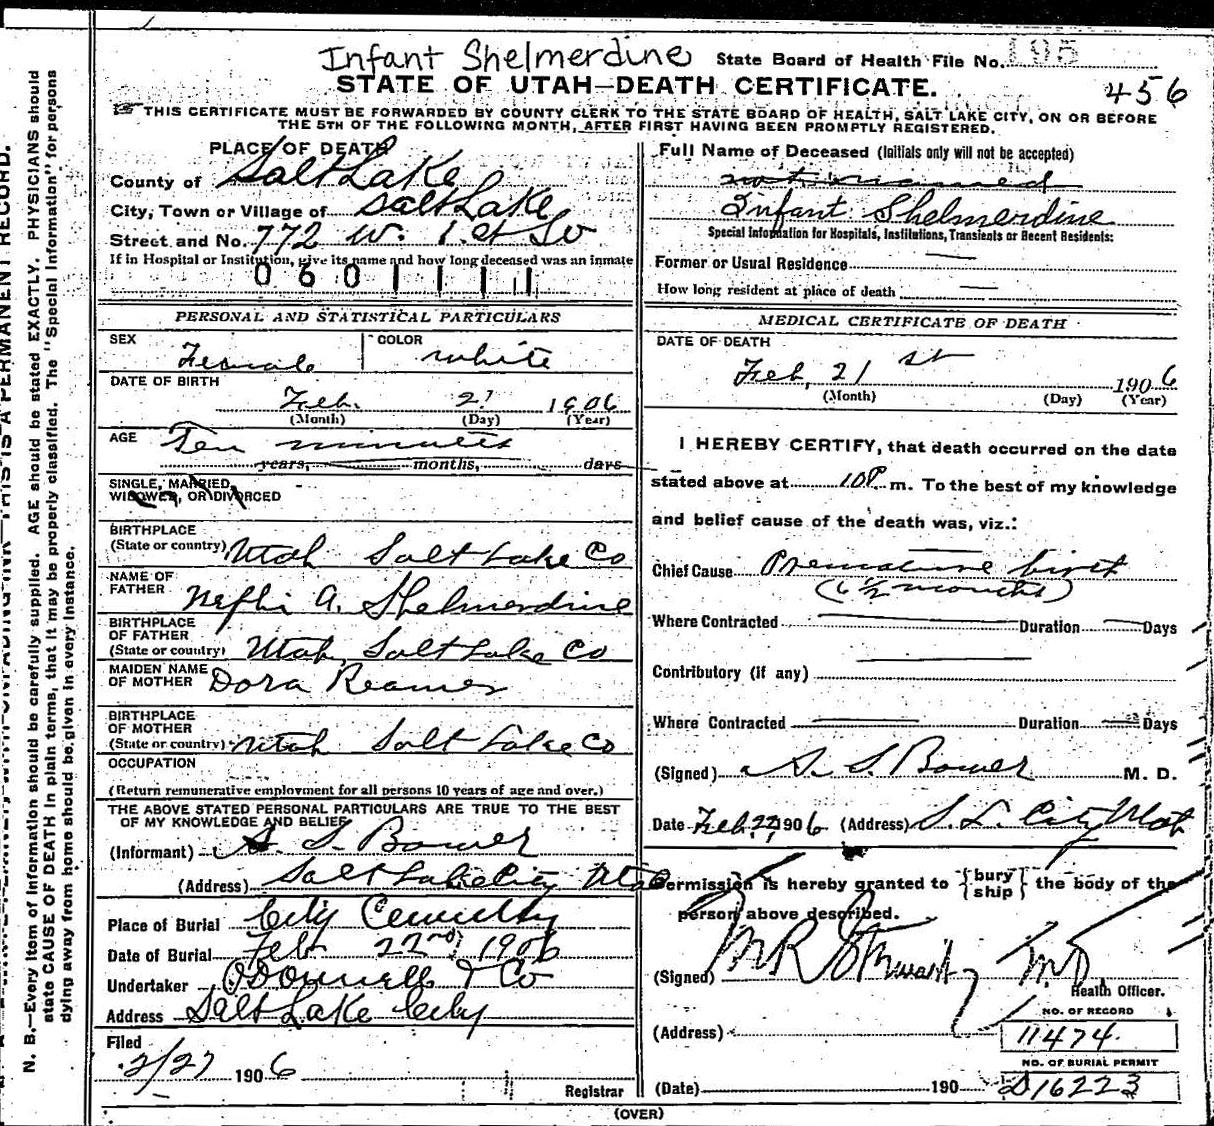 Infant Shelmerdine State Board of Health File No. 195
STATE OF UTAH—DEATH CERTIFICATE.
456
THIS CERTIFICATE MUST BE FORWARDED BY COUNTY CLERK TO THE STATE BOARD OF HEALTH, SALT LAKE CITY, ON OR BEFORE
THE 5TH OF THE FOLLOWING MONTH, AFTER FIRST HAVING BEEN PROMPTLY REGISTERED.
PLACE OF DEATH
County of Salt Lake
City, Town or Village of Salt Lake
Street and No. 772 W. 1st So
If in Hospital or Institution, give its name and how long deceased was an inmate
0601111
PERSONAL AND STATISTICAL PARTICULARS
SEX Female COLOR white
DATE OF BIRTH
Feb. 21 1906
(Month) (Day) (Year)
AGE Ten minutes
years, months, days
SINGLE, MARRIED,
WIDOWED, OR DIVORCED
BIRTHPLACE
(State or country) Utah Salt Lake Co
NAME OF
FATHER Nephi A. Shelmerdine
BIRTHPLACE
OF FATHER
(State or country) Utah, Salt Lake Co
MAIDEN NAME
OF MOTHER Dora Reamer
BIRTHPLACE
OF MOTHER
(State or country) Utah Salt Lake Co
OCCUPATION
(Return remunerative employment for all persons 10 years of age and over.)
THE ABOVE STATED PERSONAL PARTICULARS ARE TRUE TO THE BEST
OF MY KNOWLEDGE AND BELIEF
(Informant) S. S. Bower
(Address) Salt Lake City Utah
Place of Burial City Cemetery
Date of Burial Feb 22nd, 1906
Undertaker O'Donnell & Co
Address Salt Lake City
Filed
2/27 1906
Registrar
Full Name of Deceased (Initials only will not be accepted)
not named
Infant Shelmerdine
Special Information for Hospitals, Institutions, Transients or Recent Residents:
Former or Usual Residence
How long resident at place of death
MEDICAL CERTIFICATE OF DEATH
DATE OF DEATH
Feb, 21st 1906
(Month) (Day) (Year)
I HEREBY CERTIFY, that death occurred on the date
stated above at 10P. m. To the best of my knowledge
and belief cause of the death was, viz.:
Chief Cause Premature birth
(6 1/2 months)
Where Contracted Duration Days
Contributory (if any)
Where Contracted Duration Days
(Signed) S. S. Bower M. D.
Date Feb. 22, 1906 (Address) S. L. City Utah
Permission is hereby granted to {bury
ship} the body of the
person above described.
(Signed) M R Stewart M.D.
Health Officer.
NO. OF RECORD
(Address) 11474.
NO. OF BURIAL PERMIT
(Date) 190 D16223
(OVER)
N. B.—Every item of information should be carefully supplied. AGE should be stated EXACTLY. PHYSICIANS should
state CAUSE OF DEATH in plain terms, that it may be properly classified. The "Special Information" for persons
dying away from home should be given in every instance.
THIS IS A PERMANENT RECORD.